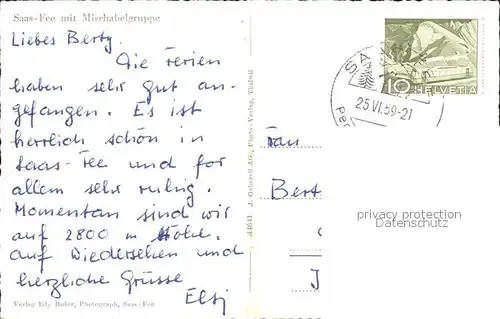 Saas-Fee mit Mischabelgruppe
Liebes Berty.
Die Ferien
haben sehr gut an-
gefangen. Es ist
herrlich schön in
Saas-Fee und for
allem sehr ruhig.
Momentan sind wir
auf 2800 m Höhe.
Auf Wiedersehen und
herzliche Grüsse
Elsj
Verlag Edy Bader, Photograph, Saas-Fee
J. Gaberell AG., Photo-Verlag, Thalwil
SA
25.VI.59-21
10 HELVETIA
Frau
Bert
privacy protection
Datenschutz
J